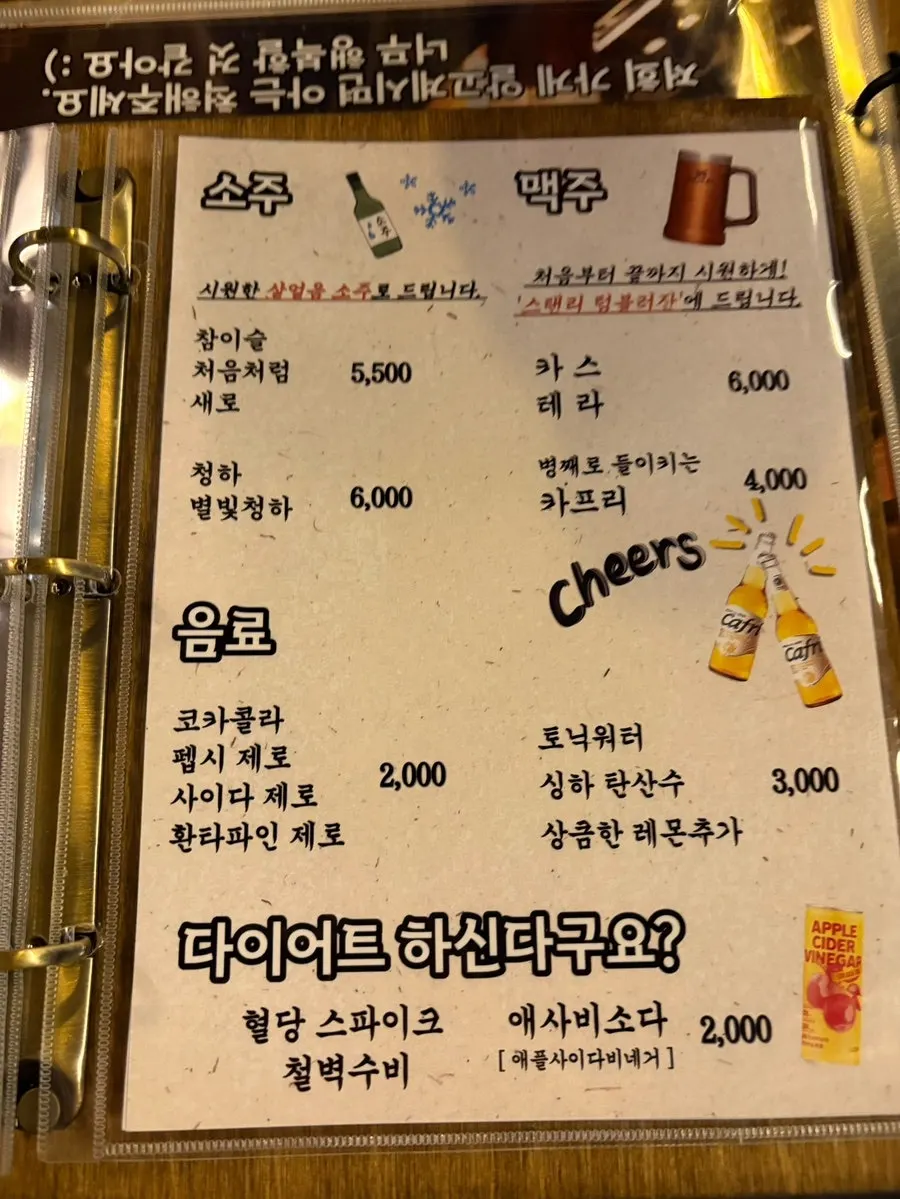 저희 가게 알고계시면 아는 척해주세요.
너무 행복할 것 같아요 :)
소주
소주
시원한 살얼음 소주로 드립니다.
참이슬
처음처럼
새로
5,500
청하
별빛청하
6,000
맥주
처음부터 끝까지 시원하게!
'스탠리 텀블러잔'에 드립니다.
카 스
테 라
6,000
병째로 들이키는
카프리
4,000
cheers
Cafri
Cafri
음료
코카콜라
펩시 제로
사이다 제로
환타파인 제로
2,000
토닉워터
싱하 탄산수
상큼한 레몬추가
3,000
다이어트 하신다구요?
혈당 스파이크
철벽수비
애사비소다
[ 애플사이다비네거 ]
2,000
APPLE
CIDER
VINEGAR